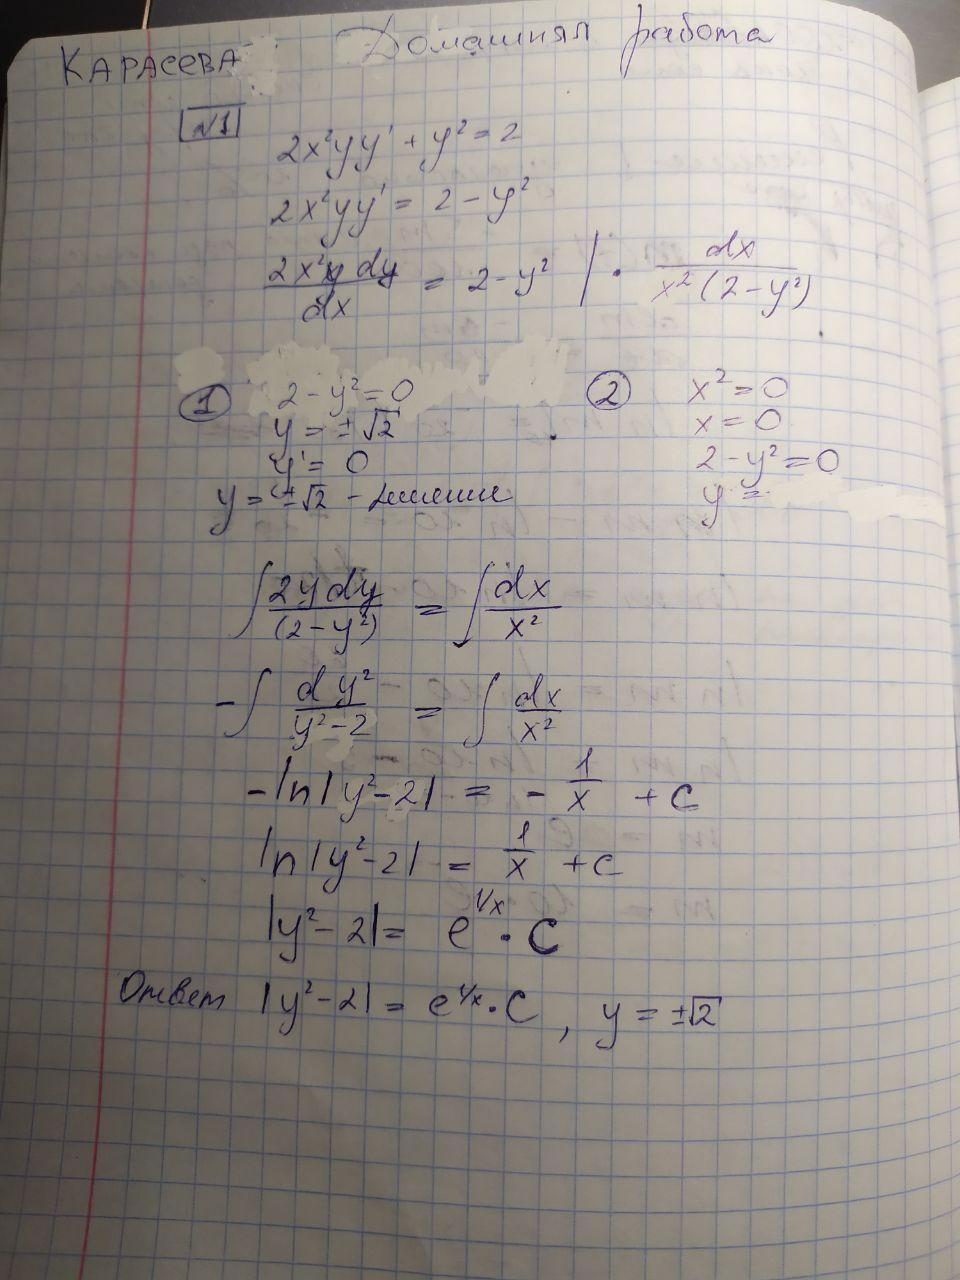 КАРАСЕВА Домашняя работа
№1
2x²yy' + y² = 2
2x²yy' = 2 - y²
2x²y dy / dx = 2 - y² | · dx / x²(2-y²)
① 2 - y² = 0
y = ±√2
y' = 0
y = ±√2 - решение
② x² = 0
x = 0
2 - y² = 0
y =
∫ 2y dy / (2-y²) = ∫ dx / x²
-∫ dy² / y²-2 = ∫ dx / x²
-ln|y²-2| = - 1/x + C
ln|y²-2| = 1/x + C
|y²-2| = e^(1/x) · C
Ответ |y²-2| = e^(1/x) · C , y = ±√2